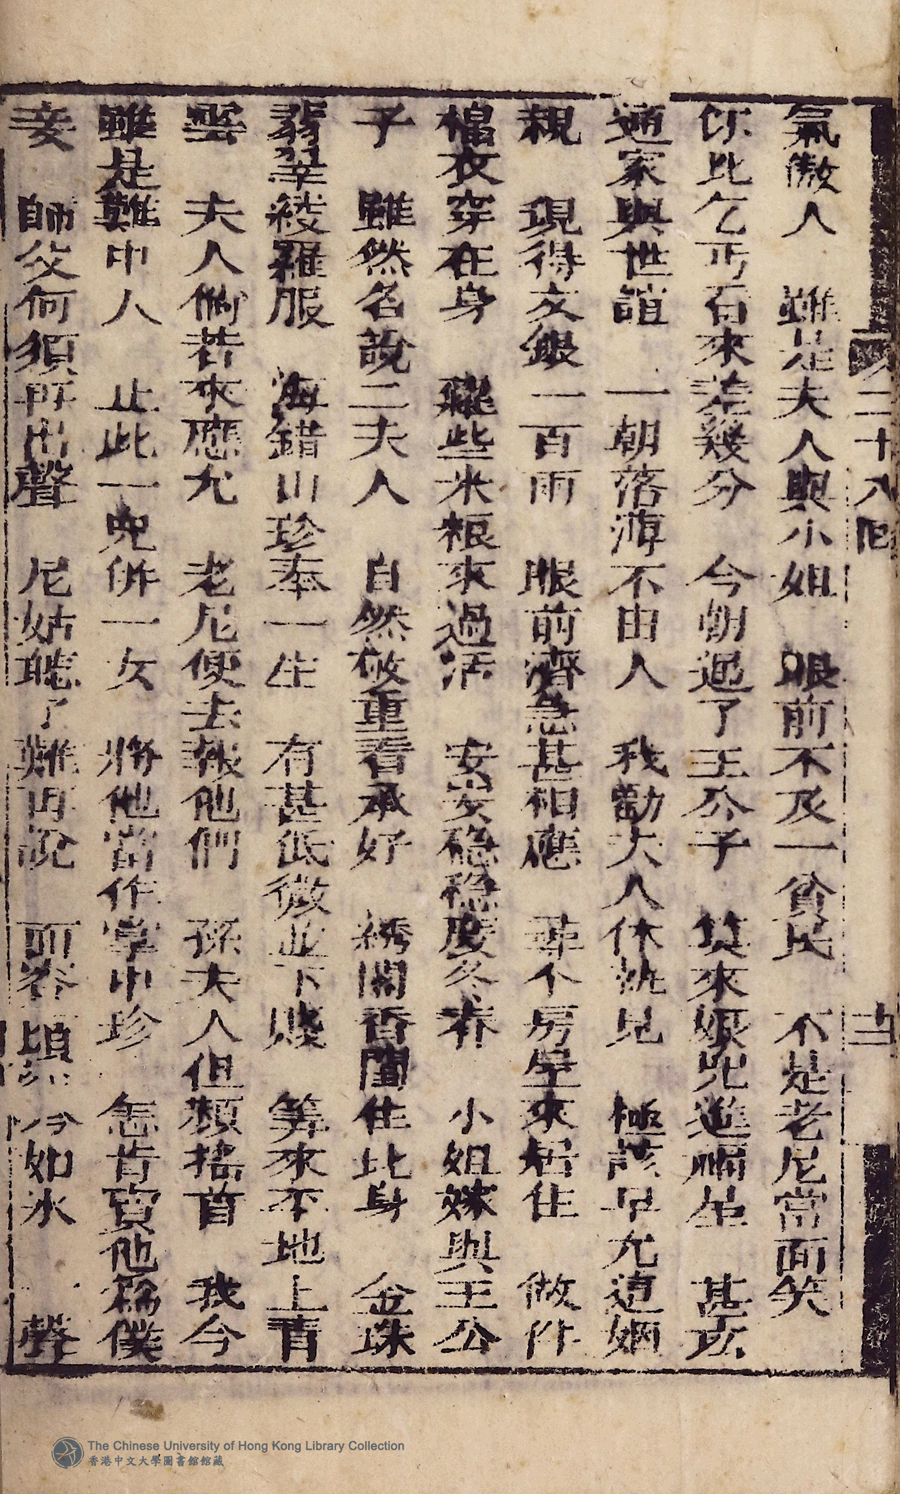 二十八回
十二
氣傲人　雖是夫人與小姐　眼前不及一貧民　不是老尼當面笑
你比乞丐石來差幾分　今朝過了王公子　莫來娘兒進禍星　甚麽
通家與世誼　一朝落薄不由人　我勸夫人休執見　極該早允這姻
親　現得文銀一百兩　眼前濟急甚相應　尋个房屋來居住　做件
棉衣穿在身　糴些米粮來過活　安安稳稳度冬春　小姐嫁與王公
子　雖然名說二夫人　自然敬重看承好　綉閣香闺住此身　金珠
翡翠綾羅服　海錯山珍奉一生　有甚低微並下賤　筭來不地上青
雲　夫人倘若來應允　老尼便去報他們　孫夫人但頻摇首　我今
雖是難中人　止此一兒併一女　將他當作掌中珍　怎肯賣他為僕
妾　師父何須再出聲　尼姑聽了難再說　面容頃刻冷如氷　聲
The Chinese University of Hong Kong Library Collection
香港中文大學圖書館館藏